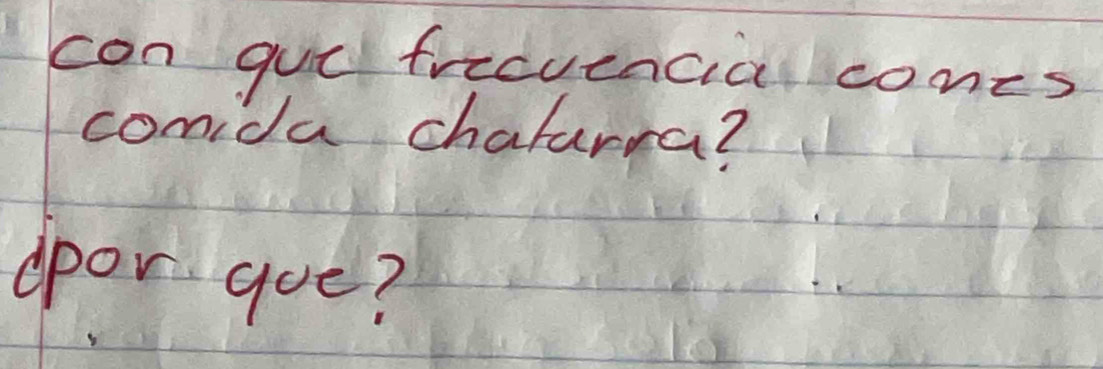 con que frecuencia comes
comida chatarra?
¿por que?